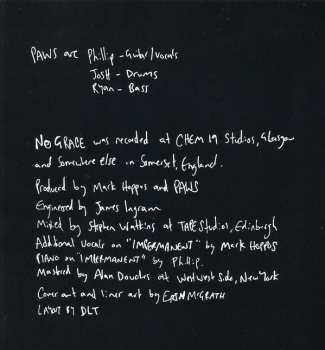 PAWS are Phillip - Guitar/Vocals
Josh - Drums
Ryan - Bass
NO GRACE was recorded at CHEM 19 Studios, Glasgow
and somewhere else in Somerset, England.
Produced by Mark Hoppus and PAWS
Engineered by James Ingram
Mixed by Stephen Watkins at TAPE Studios, Edinburgh
Additional vocals on "IMPERMANENT" by Mark Hoppus
PIANO on "IMPERMANENT" by Phillip.
Mastered by Alan Douches at West West Side, New York
Cover art and liner art by ERIN McGRATH
LAYOUT BY DLT